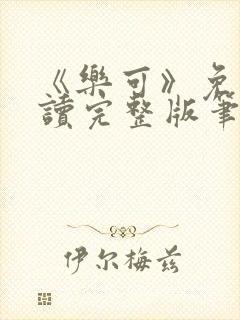 《樂可》免
讀完整版筆
伊尔梅兹